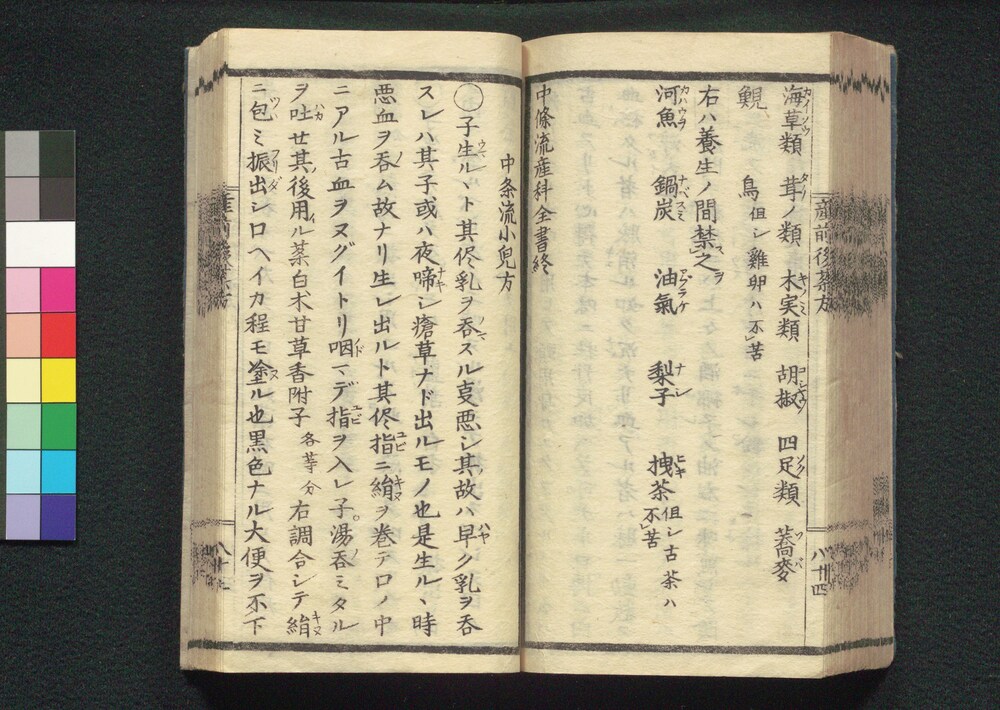 産前後茶方
八十四
海草類 茸ノ類 木実類 胡椒 四足類 蕎麥
鳥 但シ雞卵ハ不苦
右ハ養生ノ間禁之
河魚 鍋炭 油氣 梨子 拽茶 但シ古茶ハ不苦
中條流産科全書終
中条流小兒方
〇子生ルヽト其侭乳ヲ吞スル㕝悪シ其故ハ早ク乳ヲ吞
スレハ其子或ハ夜啼シ瘡草ナド出ルモノ也是生ルヽ時
悪血ヲ吞ム故ナリ生レ出ルト其侭指ニ絹ヲ巻テロノ中
ニアル古血ヲヌグイトリ咽マデ指ヲ入レ子湯吞ミタル
ヲ吐せ其後用ル茶白朮甘草香附子各等分右調合シテ絹
ニ包ミ振出シロヘイカ程モ塗ル也黒色ナル大便ヲ不下